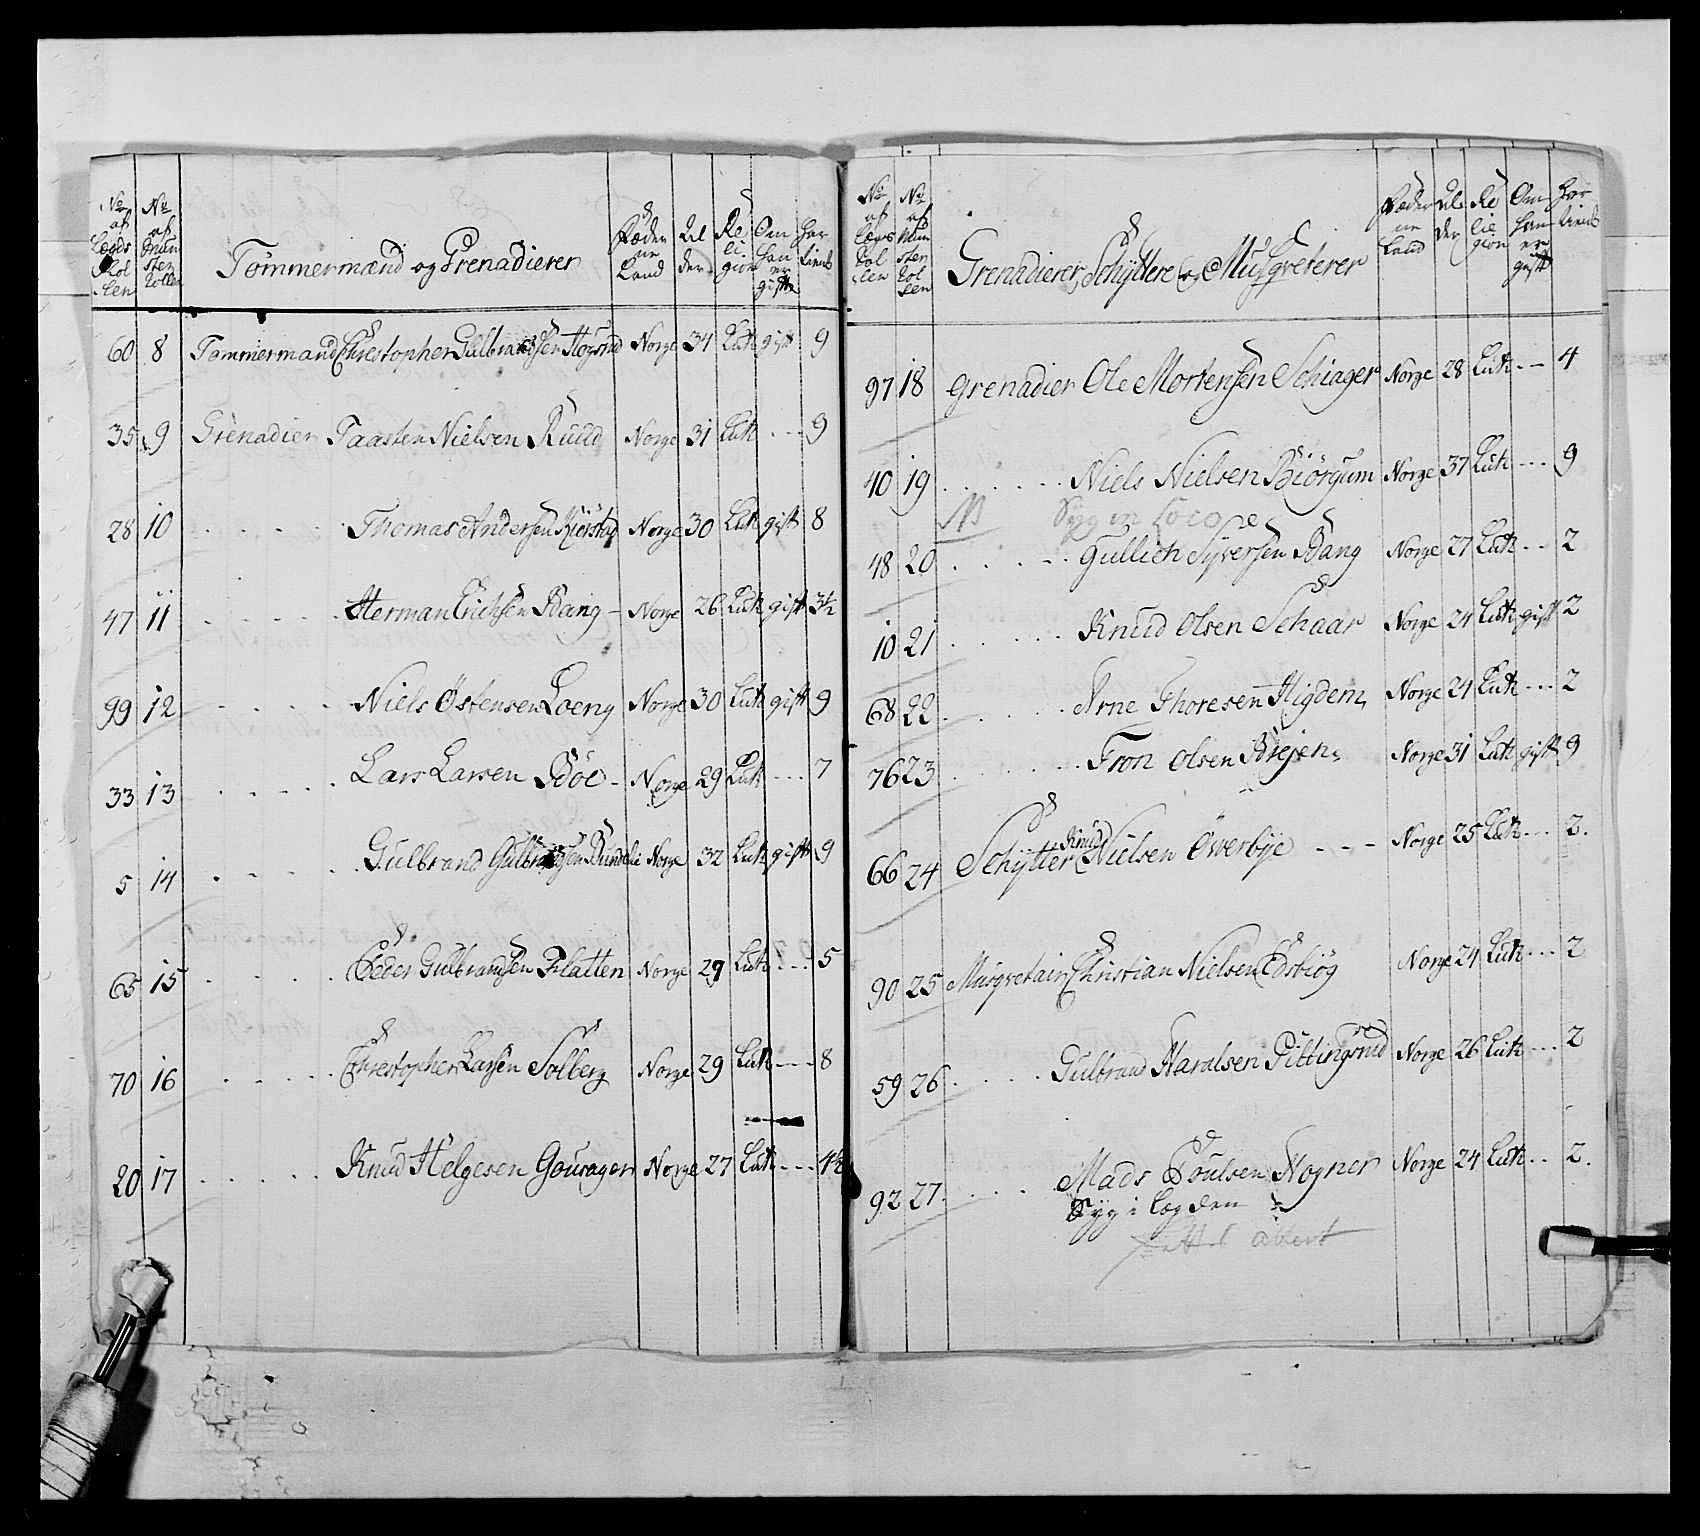 No af Lægds Rol len | No af Mun ster Rollen | Tommermænd og Grenadierer | Fæder ne Land | Al der | Re li gion | Om han er gift | har tient
60 8 Tommermand Chrestopher Gulbrandsen Hogsrud Norge 34 Luth gift 9
35 9 Grenadier Taasten Nielsen Ruud Norge 31 Luth --- 9
28 10 Thomas Andersen Kiørstad Norge 30 Luth gift 8
47 11 Herman Erichsen Bang - Norge 26 Luth gift 3½
99 12 Niels Østensen Loeng Norge 30 Luth gift 9
33 13 Lars Larsen Bøe - Norge 29 Luth --- 7
5 14 Gulbrand Gulbrandsen Bundelie Norge 32 Luth gift 9
65 15 Peder Gulbrandsen Flatten Norge 29 Luth --- 5
70 16 Chrestopher Larsen Solberg Norge 29 Luth --- 8
20 17 Knud Helgesen Gouragen Norge 27 Luth ---
No af Lægds Rol len | No af Mun ster Rol len | Grenadierer, Schyttere og Musqveterer | Fæder ne Land | Al der | Re lie gion | Om han er gift | har tient
97 18 Grenadier Ole Mortensen Schiager Norge 28 Luth -- 4
40 19 Niels Nielsen Biørgum Norge 37 Luth --- 9
Syg in Loco
48 20 Gullich Syversen Bang Norge 27 Luth -- 2
10 21 Knud Olsen Schaar Norge 24 Luth gift 2
68 22 Arne Thoresen Higdem Norge 24 Luth --- 2
76 23 Tron Olsen Biejen Norge 31 Luth gift 9
66 24 Schytter Knud Nielsen Øverbye --- Norge 25 Luth --- 2.
90 25 Musqvetair Christian Nielsen Edsbiøg Norge 24 Luth --- 2
59 26 Gulbrand Haralsen Pittingsrud Norge 26 Luth --- 2
92 27 Mads Poulsen Hogner Norge 24 Luth -- 2.
Syg i Lægden